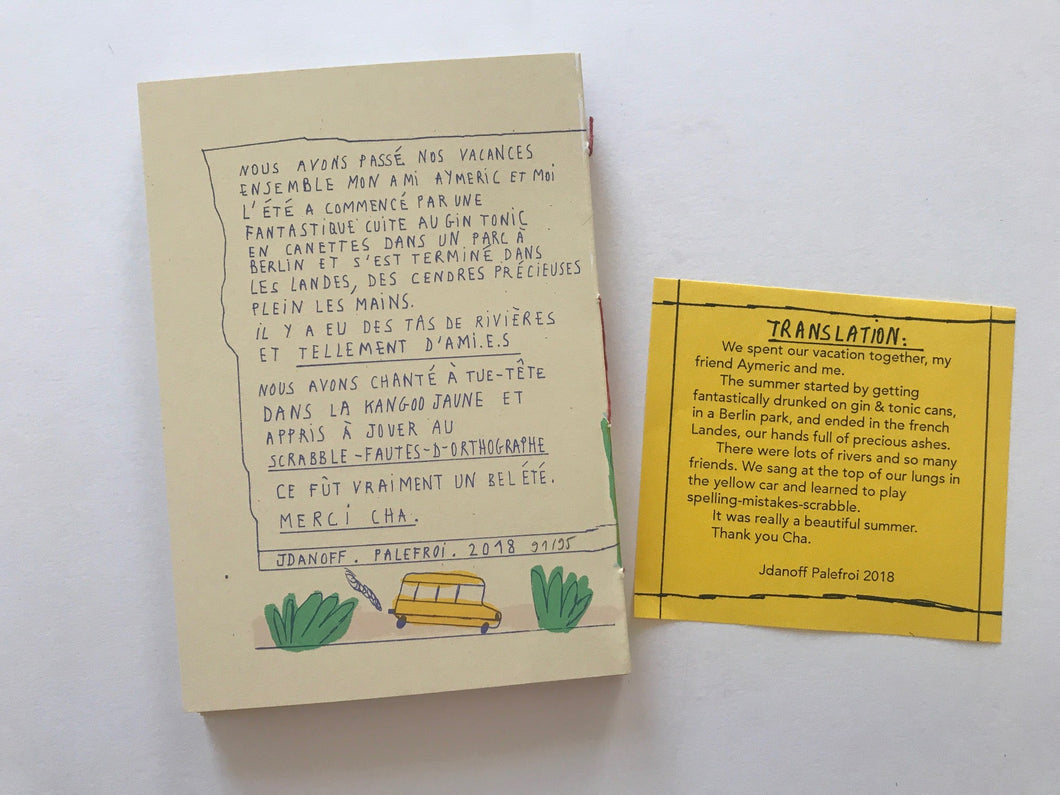 NOUS AVONS PASSÉ NOS VACANCES
ENSEMBLE MON AMI AYMERIC ET MOI
L'ÉTÉ A COMMENCÉ PAR UNE
FANTASTIQUE CUITE AU GIN TONIC
EN CANETTES DANS UN PARC À
BERLIN ET S'EST TERMINÉ DANS
LES LANDES, DES CENDRES PRÉCIEUSES
PLEIN LES MAINS.
IL Y A EU DES TAS DE RIVIÈRES
ET TELLEMENT D'AMI.E.S
NOUS AVONS CHANTÉ À TUE-TÊTE
DANS LA KANGOO JAUNE ET
APPRIS À JOUER AU
SCRABBLE-FAUTES-D-ORTHOGRAPHE
CE FÛT VRAIMENT UN BEL ÉTÉ.
MERCI CHA.
JDANOFF. PALEFROI. 2018 91/95
TRANSLATION:
We spent our vacation together, my
friend Aymeric and me.
The summer started by getting
fantastically drunked on gin & tonic cans,
in a Berlin park, and ended in the french
Landes, our hands full of precious ashes.
There were lots of rivers and so many
friends. We sang at the top of our lungs in
the yellow car and learned to play
spelling-mistakes-scrabble.
It was really a beautiful summer.
Thank you Cha.
Jdanoff Palefroi 2018